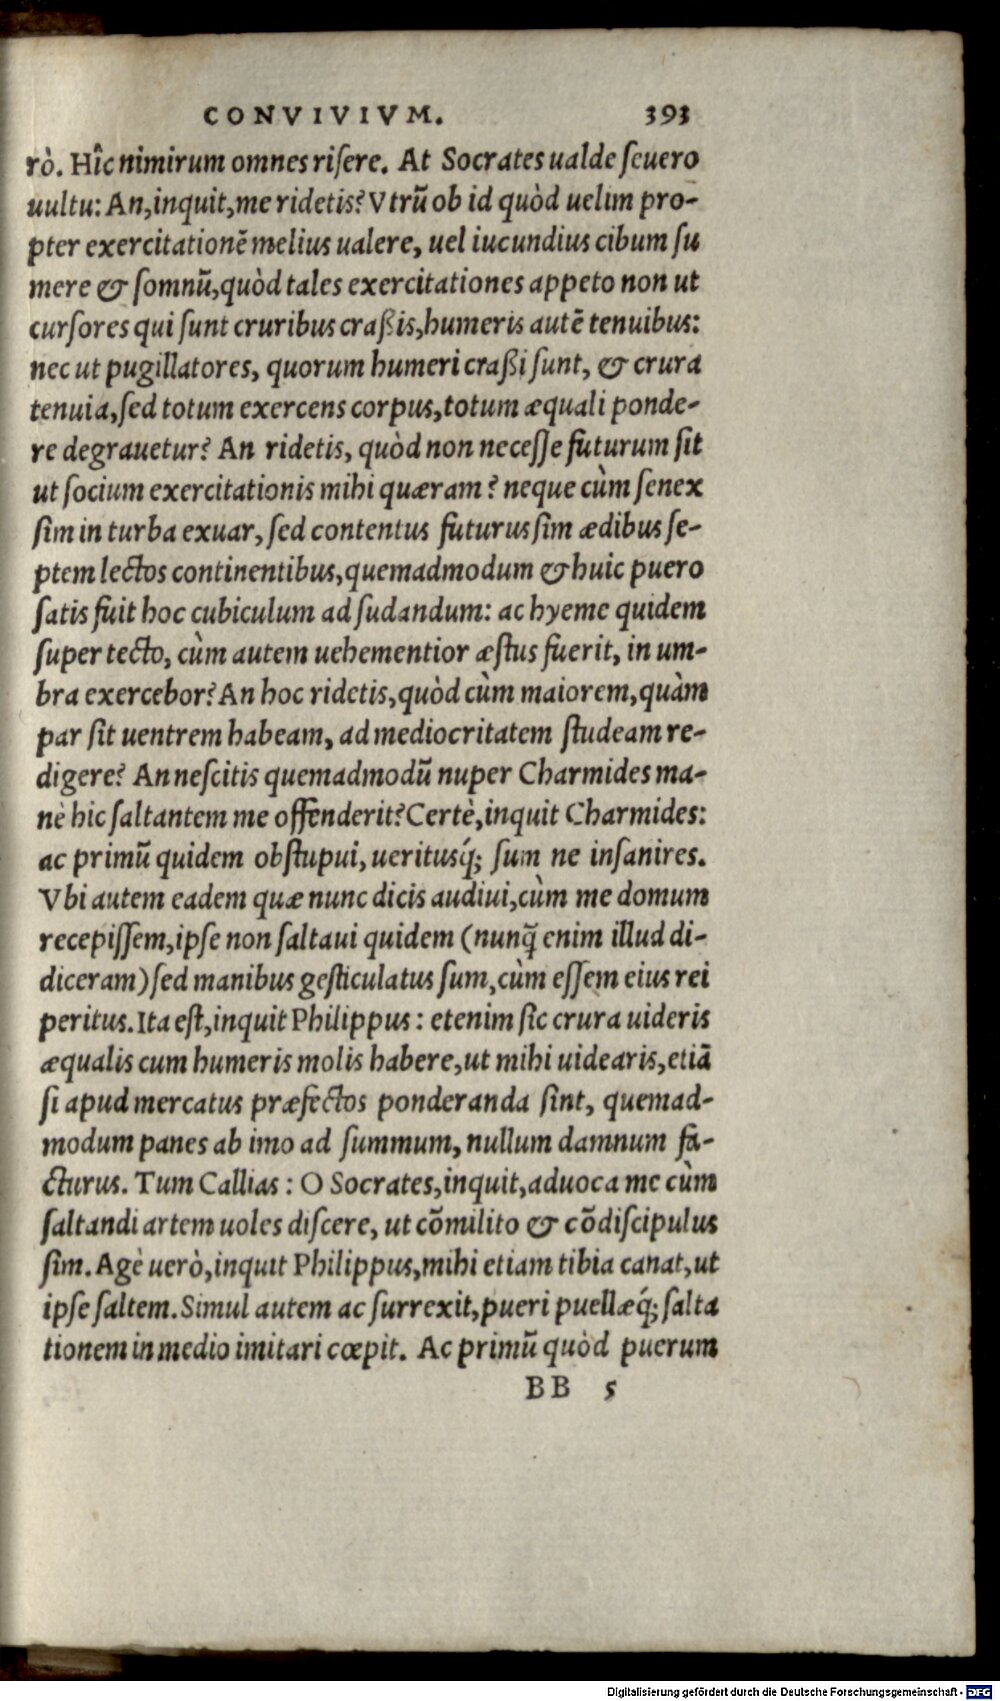 CONVIVIVM. 393
rò. Hîc nimirum omnes riſere. At Socrates ualde ſeuero
uultu: An, inquit, me ridetis? Vtrũ ob id quòd uelim pro-
pter exercitationẽ melius ualere, uel iucundius cibum ſu
mere & ſomnũ, quòd tales exercitationes appeto non ut
curſores qui ſunt cruribus craßis, humeris autẽ tenuibus:
nec ut pugillatores, quorum humeri craßi ſunt, & crura
tenuia, ſed totum exercens corpus, totum æquali ponde-
re degrauetur? An ridetis, quòd non neceſſe futurum ſit
ut ſocium exercitationis mihi quæram? neque cùm ſenex
ſim in turba exuar, ſed contentus futurus ſim ædibus ſe-
ptem lectos continentibus, quemadmodum & huic puero
ſatis fuit hoc cubiculum ad ſudandum: ac hyeme quidem
ſuper tecto, cùm autem uehementior æſtus fuerit, in um-
bra exercebor? An hoc ridetis, quòd cùm maiorem, quàm
par ſit uentrem habeam, ad mediocritatem ſtudeam re-
digere? An neſcitis quemadmodũ nuper Charmides ma-
nè hic ſaltantem me offenderit? Certè, inquit Charmides:
ac primũ quidem obſtupui, ueritusq́; ſum ne inſanires.
Vbi autem eadem quæ nunc dicis audiui, cùm me domum
recepiſſem, ipſe non ſaltaui quidem (nunq̃ enim illud di-
diceram) ſed manibus geſticulatus ſum, cùm eſſem eius rei
peritus. Ita eſt, inquit Philippus: etenim ſic crura uideris
æqualis cum humeris molis habere, ut mihi uidearis, etiã
ſi apud mercatus præfectos ponderanda ſint, quemad-
modum panes ab imo ad ſummum, nullum damnum fa-
cturus. Tum Callias: O Socrates, inquit, aduoca me cùm
ſaltandi artem uoles diſcere, ut cõmilito & cõdiſcipulus
ſim. Agè uerò, inquit Philippus, mihi etiam tibia canat, ut
ipſe ſaltem. Simul autem ac ſurrexit, pueri puellæq́; ſalta
tionem in medio imitari cœpit. Ac primũ quòd puerum
BB 5
Digitalisierung gefördert durch die Deutsche Forschungsgemeinschaft - DFG